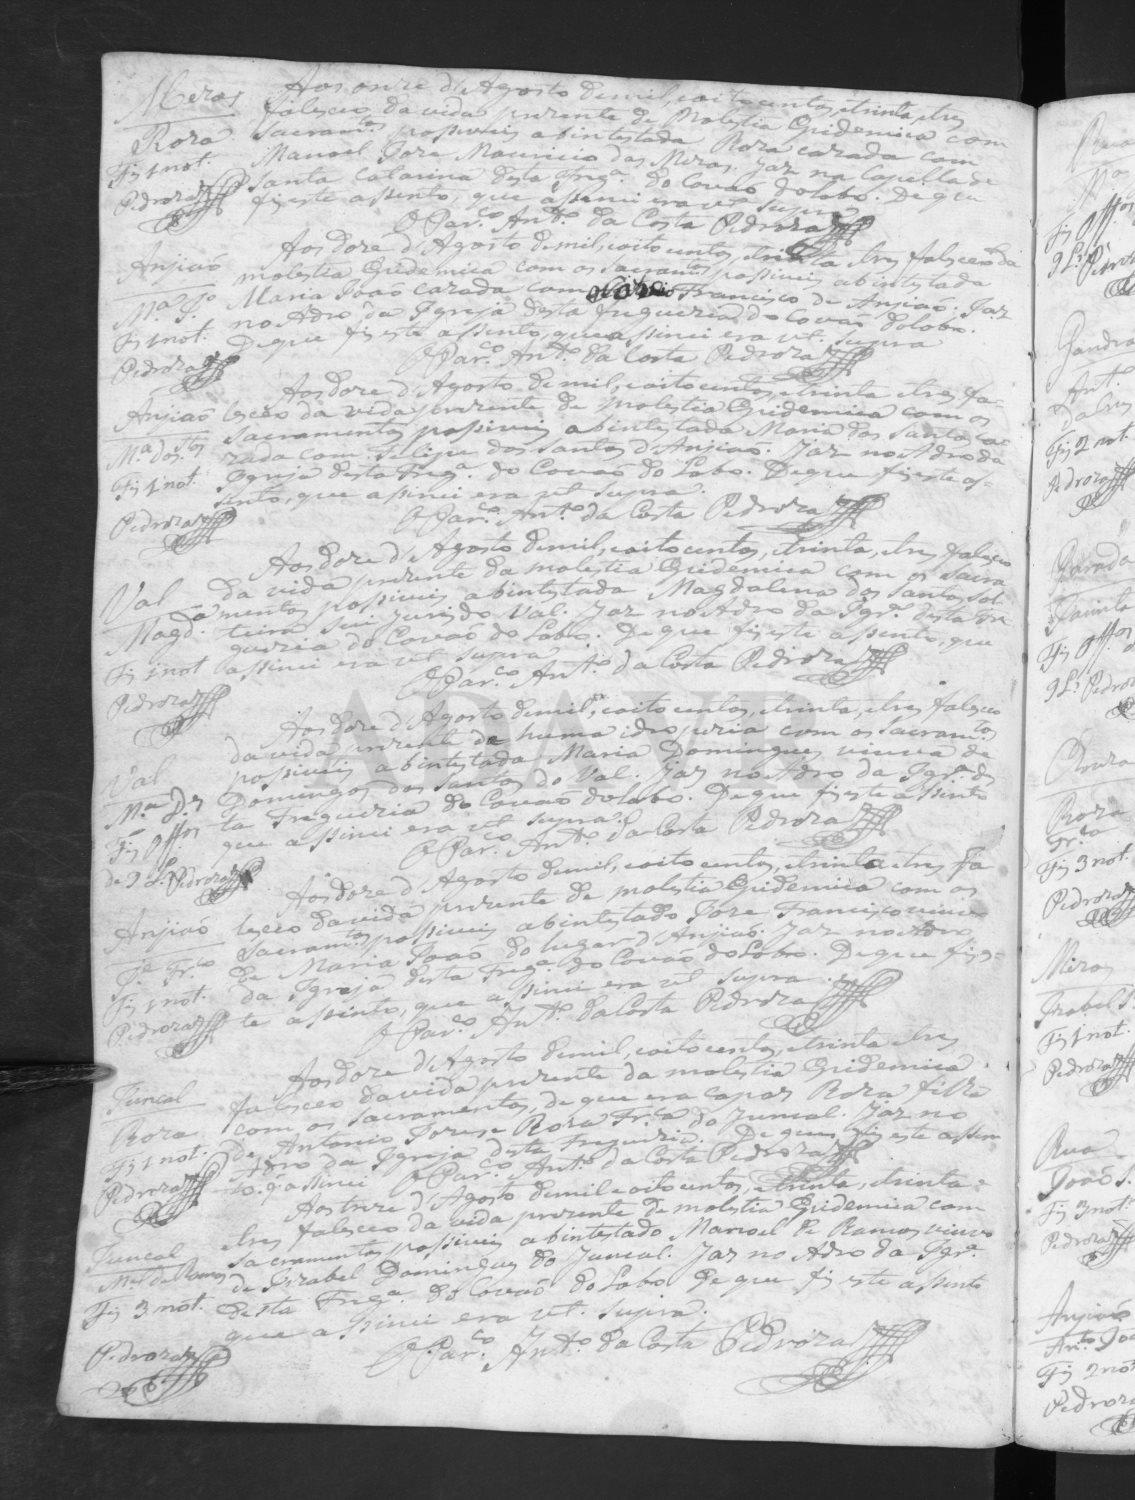 Meros
Rora
Fiz 1 not.
Pedroza
Aos onze d'Agosto de mil, e oito centos, e trinta, e tres
faleceo da vida prezente de Molestia Epidemica com
Sacramtos possiveis abintestada Roza cazada com
Manoel Joze Mauricio das Meras. Jaz na Capella de
Santa Catarina desta Frega. do Covaõ do Lobo. De que
fiz este assento, que assinei era ut supra
O Par.co Ant.o da Costa Pedroza
Anjiaõ
Ma. Jo.
Fiz 1 not.
Pedroza
Aos doze d'Agosto de mil, e oito centos, e trinta e tres faleceo da
molestia Epidemica com os Sacramtos possiveis abintestada
Maria Joaõ cazada com Francisco de Anjiaõ. Jaz
no Adro da Igreja desta Freguezia do Covaõ do Lobo.
De que fiz este assento, que assinei era ut. supra
O Par.co Ant.o da Costa Pedroza
Anjiaõ
Ma. dos Stos
Fiz 1 not.
Pedroza
Aos doze d'Agosto de mil, e oito centos, e trinta e tres fa-
leceo da vida prezente de molestia Epidemica com os
Sacramentos possiveis abintestada Maria dos Santos ca-
zada com Felipe dos Santos d'Anjiaõ. Jaz no Adro da
Igreja desta Frega. do Covaõ do Lobo. De que fiz este as-
sento, que assinei era ut supra.
O Par.co Ant.o da Costa Pedroza
Val
Magd.a
Fiz 1 not
Pedroza
Aos doze d'Agosto de mil, e oito centos, e trinta, e tres faleceo
da vida prezente da molestia Epidemica com os Sacra
mentos possiveis abintestada Magdalena dos Santos sol
teira do Val. Jaz no Adro da Igr.a desta Fre
guezia do Covaõ do Lobo. De que fiz este assento, que
assinei era ut supra
O Par.co Ant.o da Costa Pedroza
Val
Ma. Dz
Fiz Offos
de 9 L. Pedroza
Aos doze d'Agosto de mil, e oito centos, e trinta, e tres faleceo
da vida prezente de huma idropezia com os Sacramtos
possiveis abintestada Maria Domingues viuva de
Domingos dos Santos do Val. Jaz no Adro da Igr.a des
ta Freguezia do Covaõ do Lobo. De que fiz este assento
que assinei era ut supra.
O Par.co Ant.o da Costa Pedroza
Anjiaõ
Je. Fr.co
Fiz 1 not.
Pedroza
Aos doze d'Agosto de mil, e oito centos, e trinta e tres fa
leceo da vida prezente de molestia Epidemica com os
Sacramtos possiveis abintestado Joze Francisco viuvo
de Maria Joaõ do lugar d'Anjiaõ. Jaz no Adro
da Igreja desta Frega. do Covaõ do Lobo. De que fiz es-
te assento, que assinei era ut supra.
O Par.co Ant.o da Costa Pedroza
Juncal
Roza
Fiz 1 not.
Pedroza
Aos doze d'Agosto de mil, e oito centos, e trinta e tres
faleceo da vida prezente da molestia Epidemica
com os sacramentos, de que era capaz Roza filha
de Antonio Joze e Roza Fr.ca do Juncal. Jaz no
Adro da Igreja desta Freguezia. De que fiz este assen
to. q assinei O Par.co Ant.o da Costa Pedroza
Juncal
Mel. de Ramos
Fiz 3 not.
Pedroza
Aos treze d'Agosto de mil e oito centos, e trinta, e trinta e
tres faleceo da vida prezente de molestia Epidemica com
sacramentos possiveis abintestado Manoel de Ramos viuvo
de Izabel Domingues do Juncal. Jaz no Adro da Igr.a
desta Frega. do Covaõ do Lobo De que fiz este assento
que assinei era ut. supra.
O Par.co Ant.o da Costa Pedroza
ADAVR
Fiz Offos
9 L.
Pedroza
Gandra
Ant.o
Fiz 2 not.
Pedroza
Fiz Offos
9 L. Pedroza
Roza
Fr.ca
Fiz 3 not.
Pedroza
Miros
Izabel
Fiz 1 not.
Pedroza
Rua
Joaõ
Fiz 3 not.
Pedroza
Anjiaõ
Ant.o Joa
Fiz 2 not
Pedroza